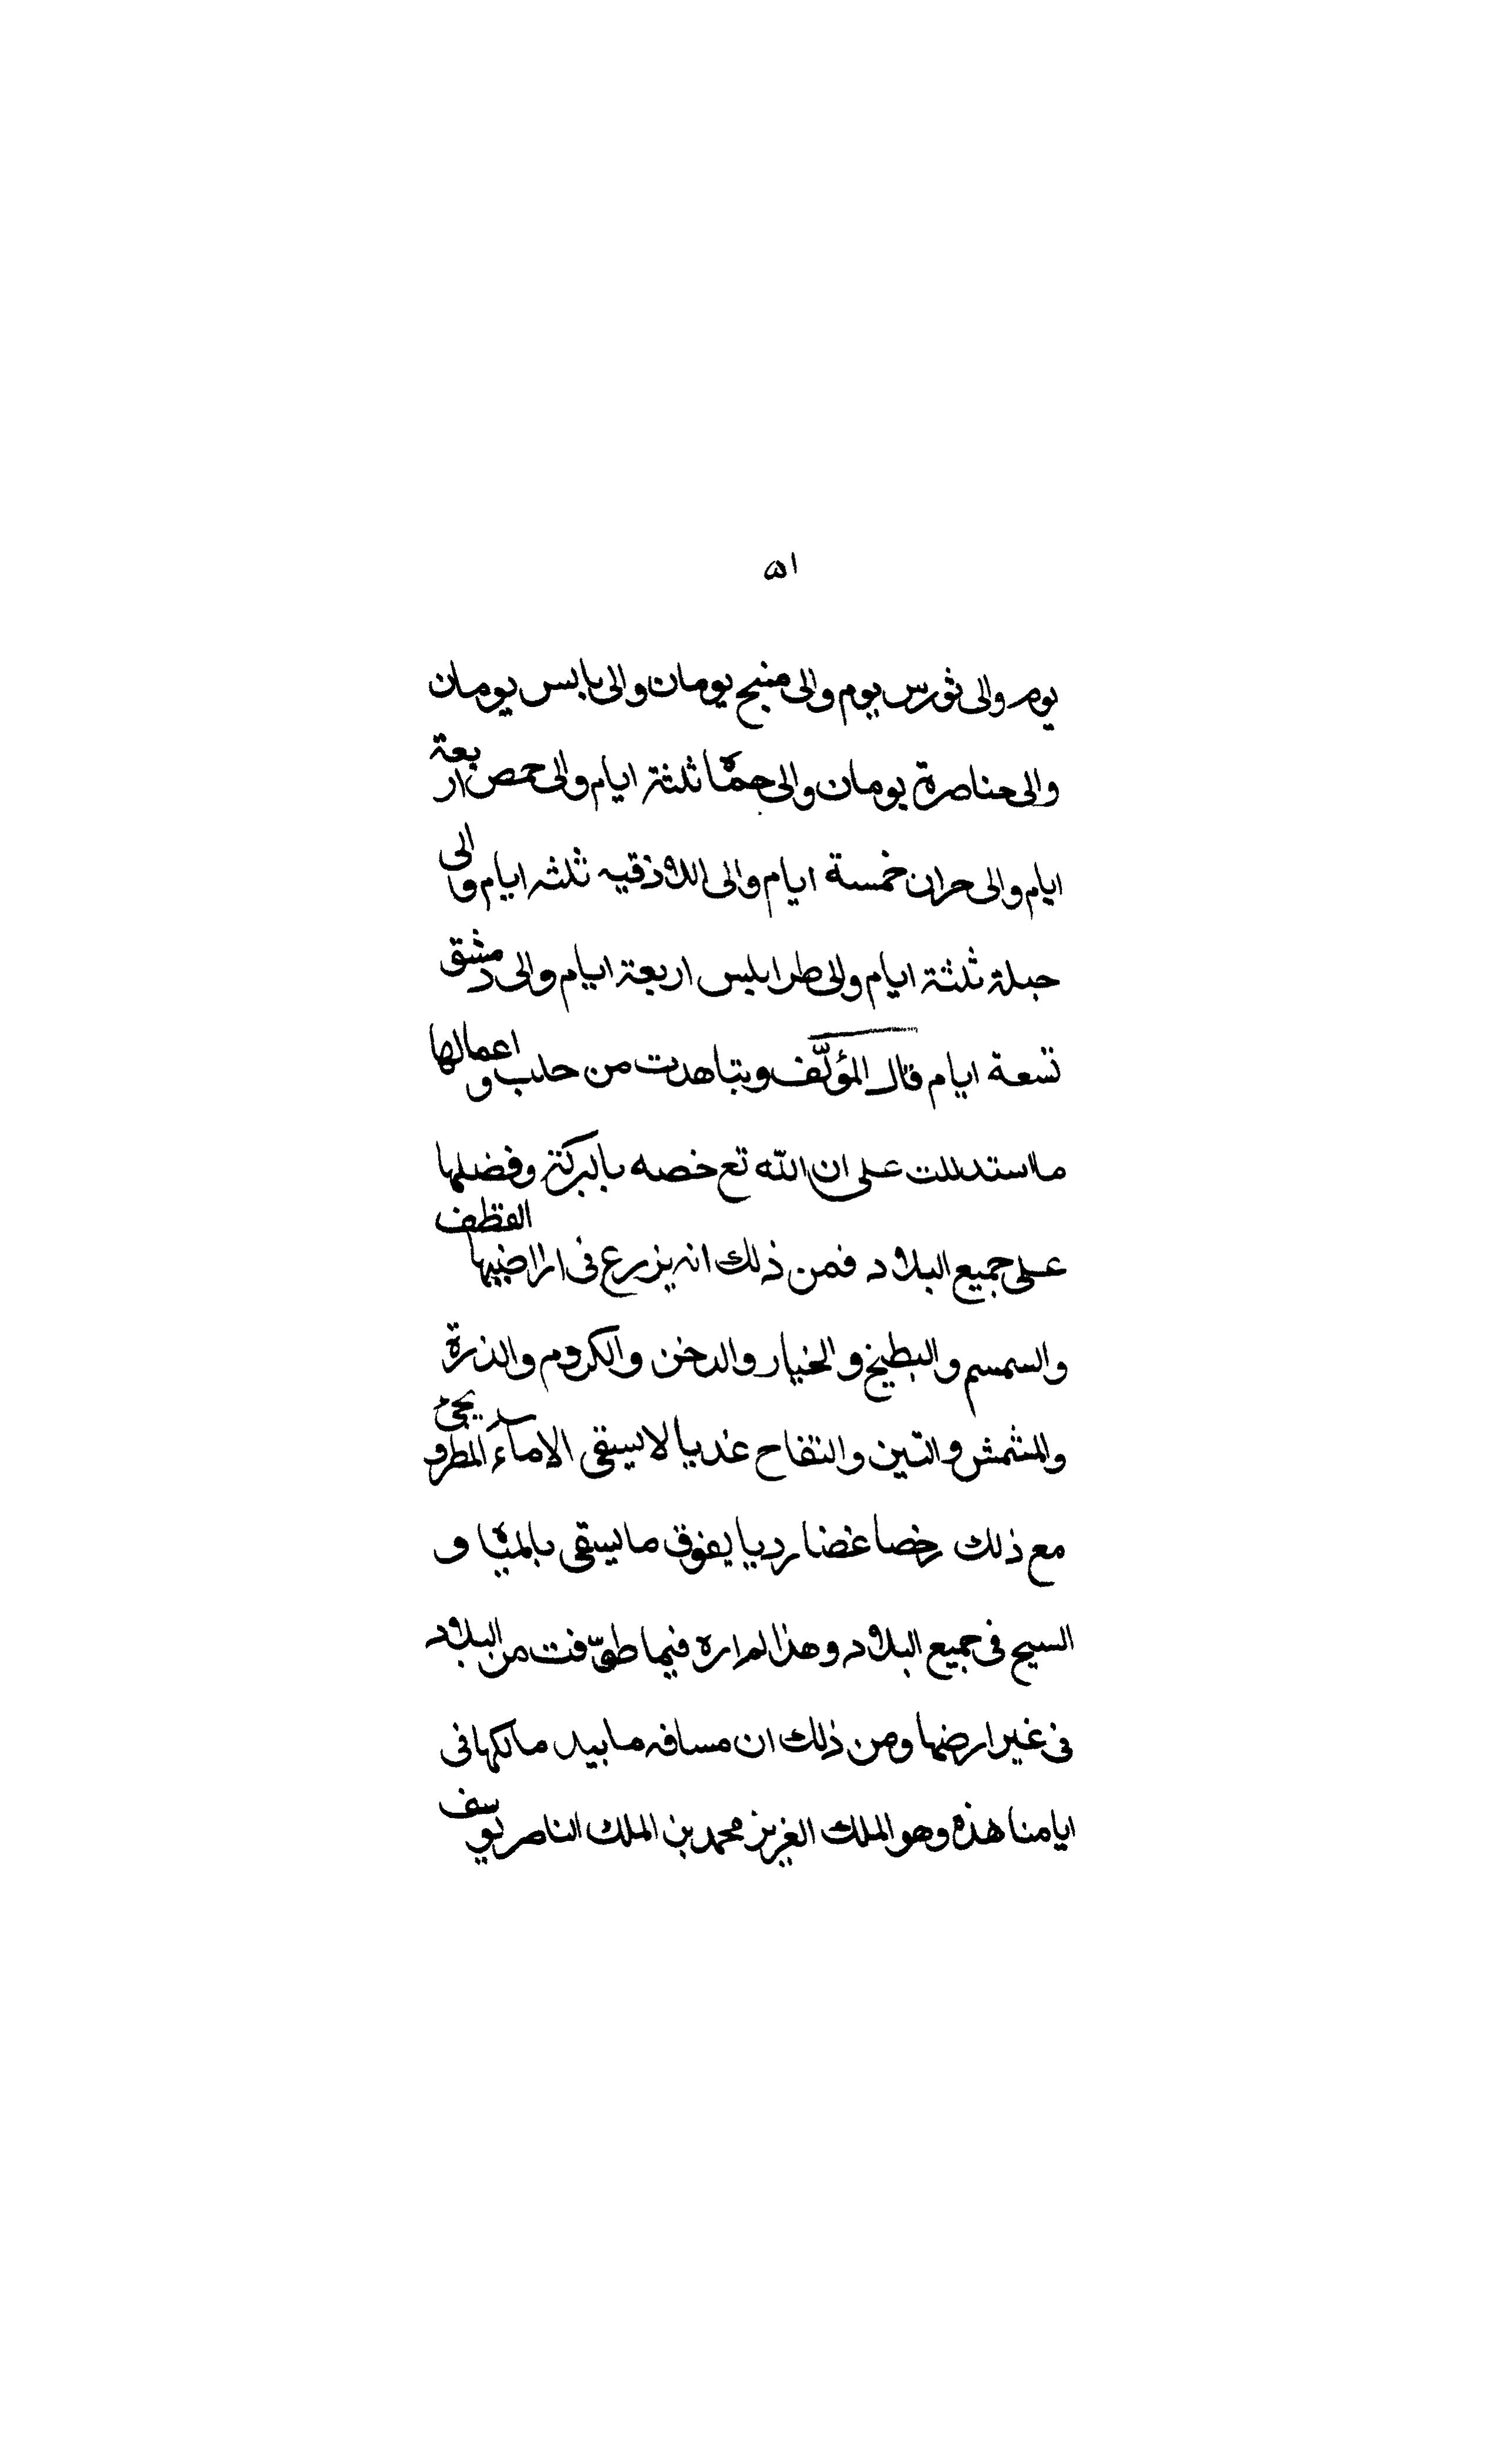 ٥١
يوم والى ثورس يوم والى منبج يومان والى بابس يومان
والى حناصرة يومان والى حماة ثلثة ايام والى حمص اربعة
ايام والى حران خمسة ايام والى اللاذقيه ثلثه ايام والى
جبلة ثلثة ايام والى طرابلس اربعة ايام والى دمشق
تسعة ايام قال المؤلّف وشاهدت من حلب و اعمالها
ما استدللت على ان الله تع خصه بالبركة وفضلها
على جميع البلاد فمن ذلك انه يزرع فى اراضيها القطف
والسمسم والبطيخ والخيار والدخن والكروم والذرة
والمشمش والتين والتفاح عذيا لا يسقى الا ماء المطر و يجئ
مع ذلك رخصا غضا رديا يفوق ما يسقى بالمياه و
السيح فى جميع البلاد وهذا لم اره فيما طوّفت من البلاد
فى غير ارضها ومن ذلك ان مسافه ما بيد مالكها فى
ايامنا هذه وهو الملك العزيز محمد بن الملك الناصر يوسف